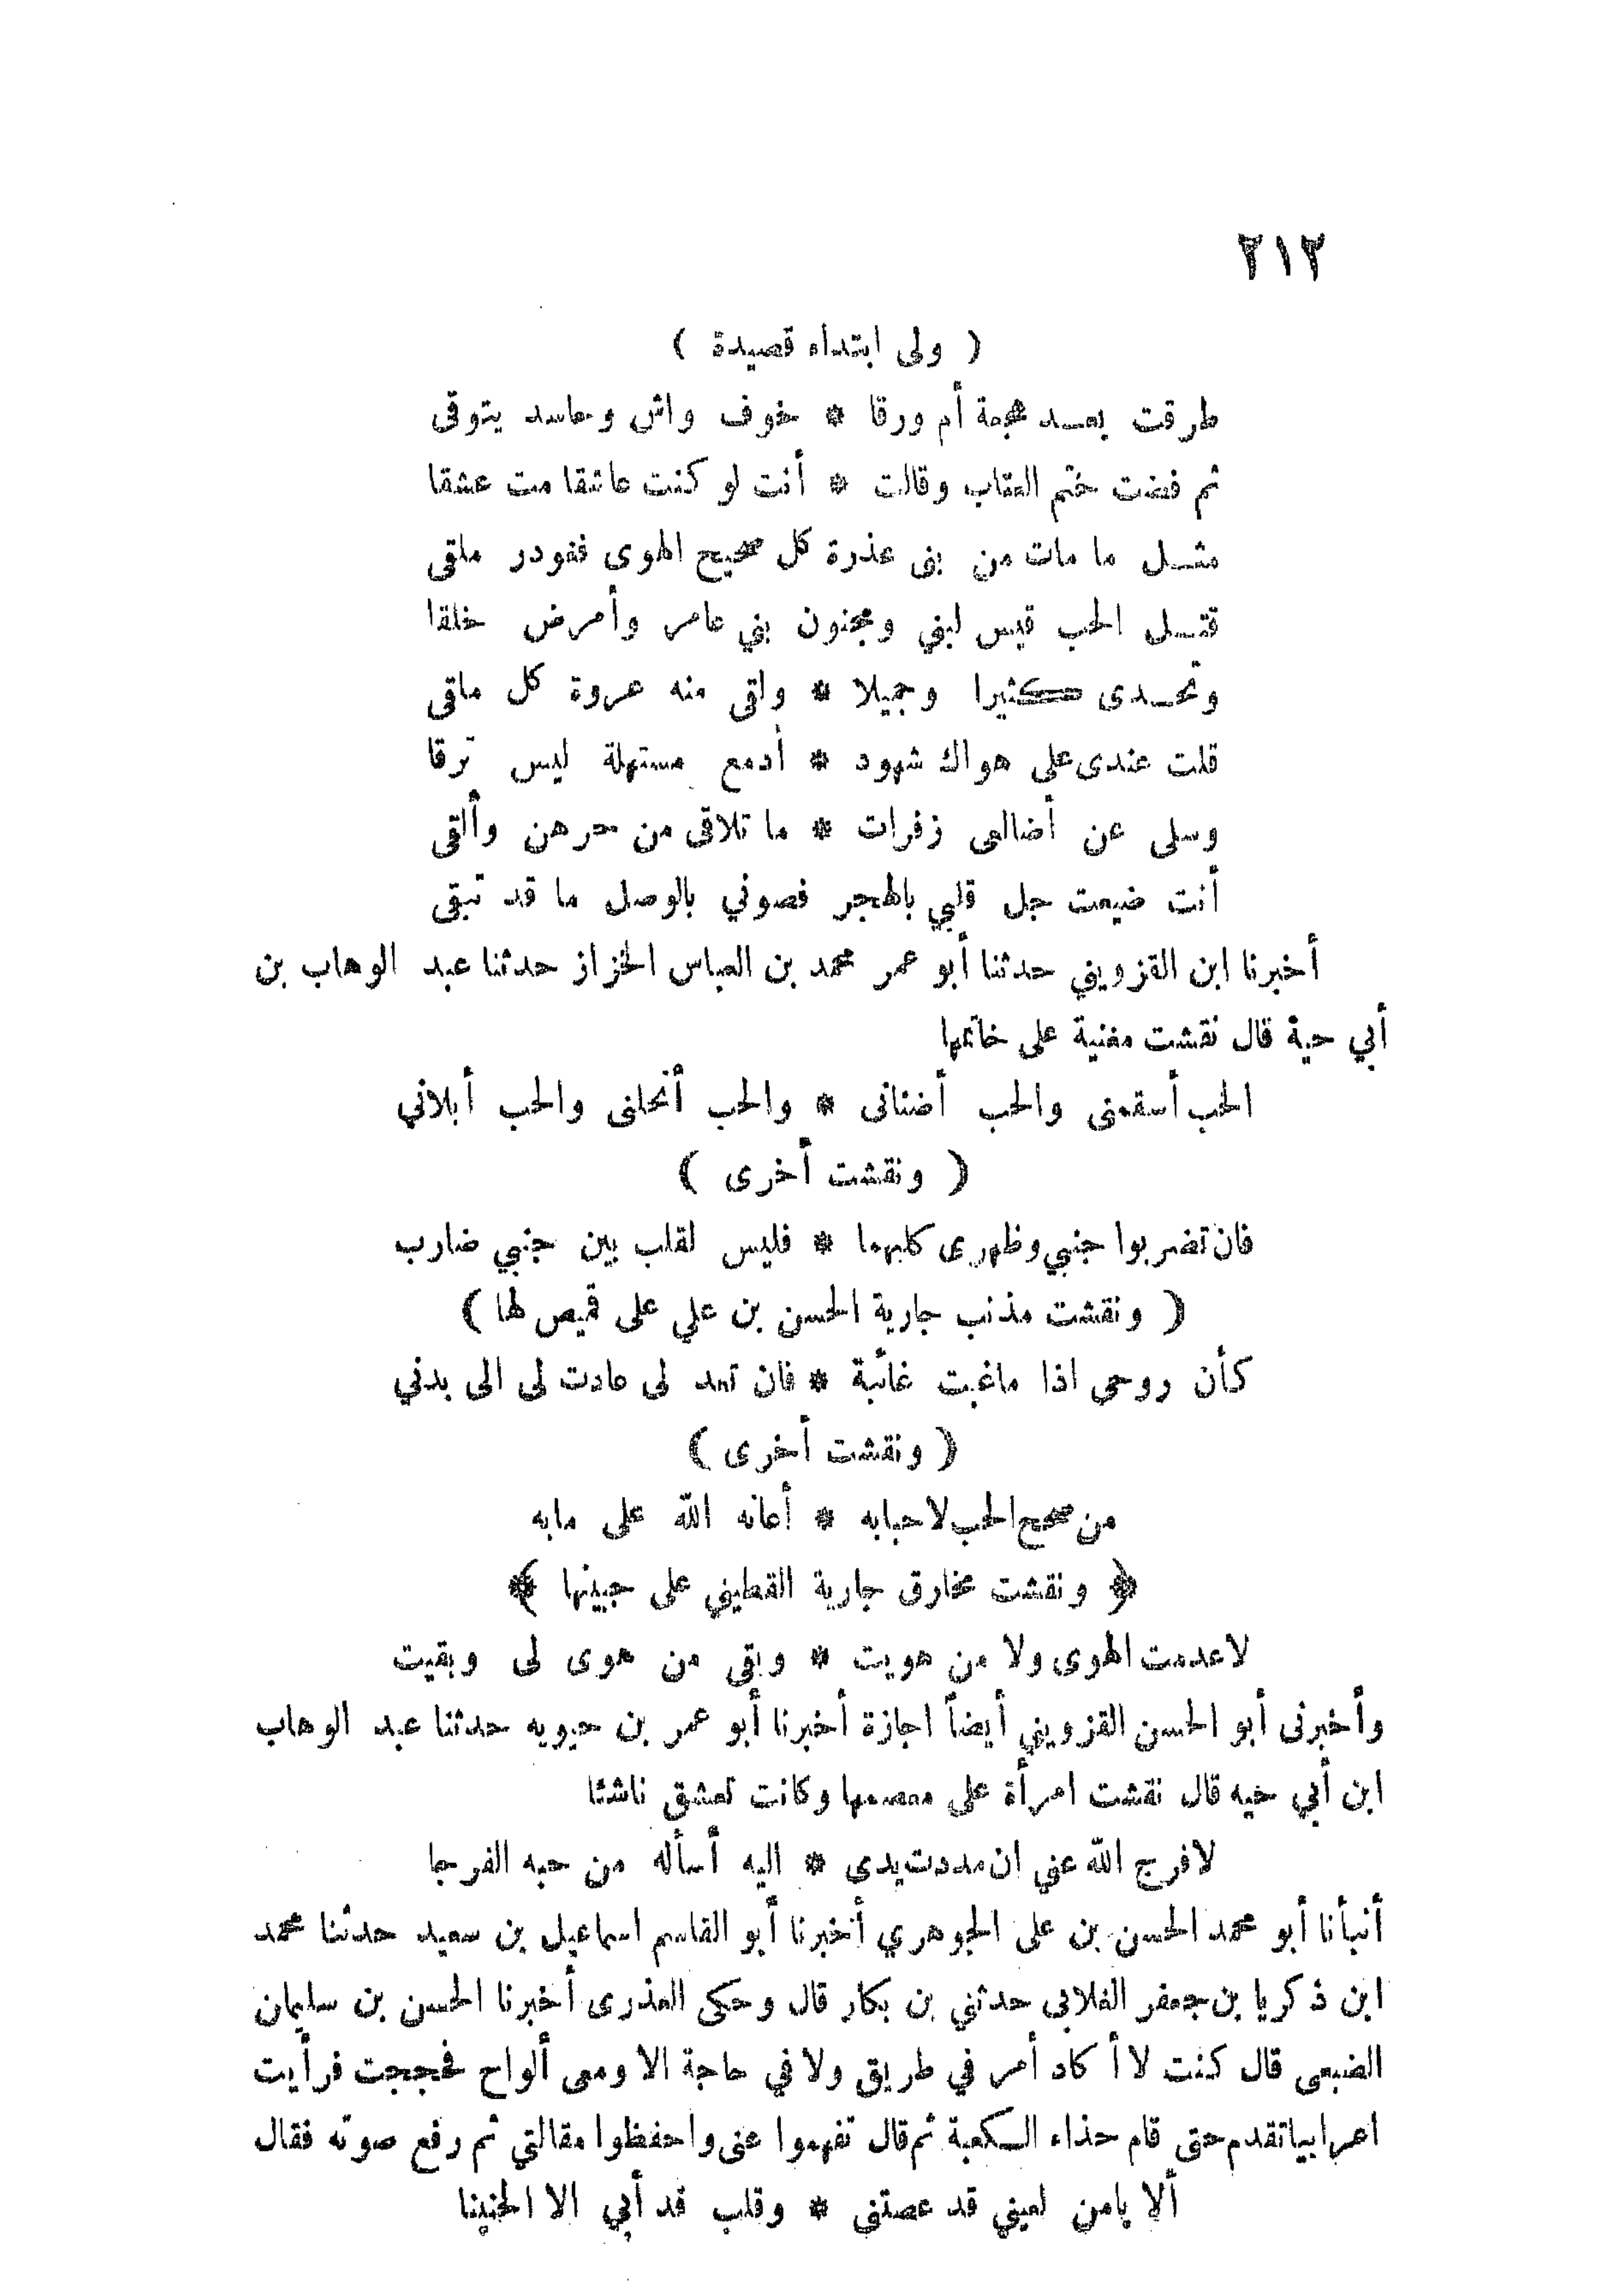 ٢١٢
( ولى ابتداء قصيدة )
طرقت بعد هجمة أم ورقا * خوف واش وحاسد يتوقى
ثم فضت ختم العتاب وقالت * أنت لو كنت عاشقا مت عشقا
مثل ما مات من بنى عذرة كل صحيح الهوى فغودر ملقى
قتل الحب قيس لبنى ومجنون بني عامر وأمرض خلقا
وتحدى كثيرا وجميلا * ولقى منه عروة كل ماقى
قلت عندى على هواك شهود * أدمع مستهلة ليس ترقا
وسلى عن أضالعى زفرات * ما تلاقى من حرهن وألقى
أنت ضيعت جل قلبي بالهجر فصوني بالوصل ما قد تبقى
أخبرنا ابن القزويني حدثنا أبو عمر محمد بن العباس الخزاز حدثنا عبد الوهاب بن
أبي حية قال نقشت مغنية على خاتمها
الحب أسقمنى والحب أضنانى * والحب أنحلنى والحب أبلاني
( ونقشت أخرى )
فان تضربوا جنبي وظهرى كليهما * فليس لقلب بين جنبي ضارب
( ونقشت مذنب جارية الحسن بن علي على قميص لها )
كأن روحى اذا ماغبت غائبة * فان تعد لى عادت لى الى بدني
( ونقشت أخرى )
من صحح الحب لاحبابه * أعانه الله على مابه
﴿ ونقشت مخارق جارية القطيني على جبينها ﴾
لاعدمت الهوى ولا من هويت * وبقى من هوى لى وبقيت
وأخبرنى أبو الحسن القزويني أيضاً اجازة أخبرنا أبو عمر بن حيويه حدثنا عبد الوهاب
ابن أبي حيه قال نقشت امرأة على معصمها وكانت تعشق ناشئا
لافرج الله عني ان مددت يدى * اليه أسأله من حبه الفرجا
أنبأنا أبو محمد الحسن بن على الجوهري أخبرنا أبو القاسم اسماعيل بن سعيد حدثنا محمد
ابن ذكريا بن جعفر الغلابى حدثني بن بكار قال وحكى العذرى أخبرنا الحسن بن سليمان
الضبعى قال كنت لا أكاد أمر في طريق ولا في حاجة الا ومعى ألواح فحججت فرأيت
اعرابيا تقدم حتى قام حذاء الكعبة ثم قال تفهموا عنى واحفظوا مقالتي ثم رفع صوته فقال
ألا يامن لعيني قد عصتنى * وقلب قد أبي الا الحنينا